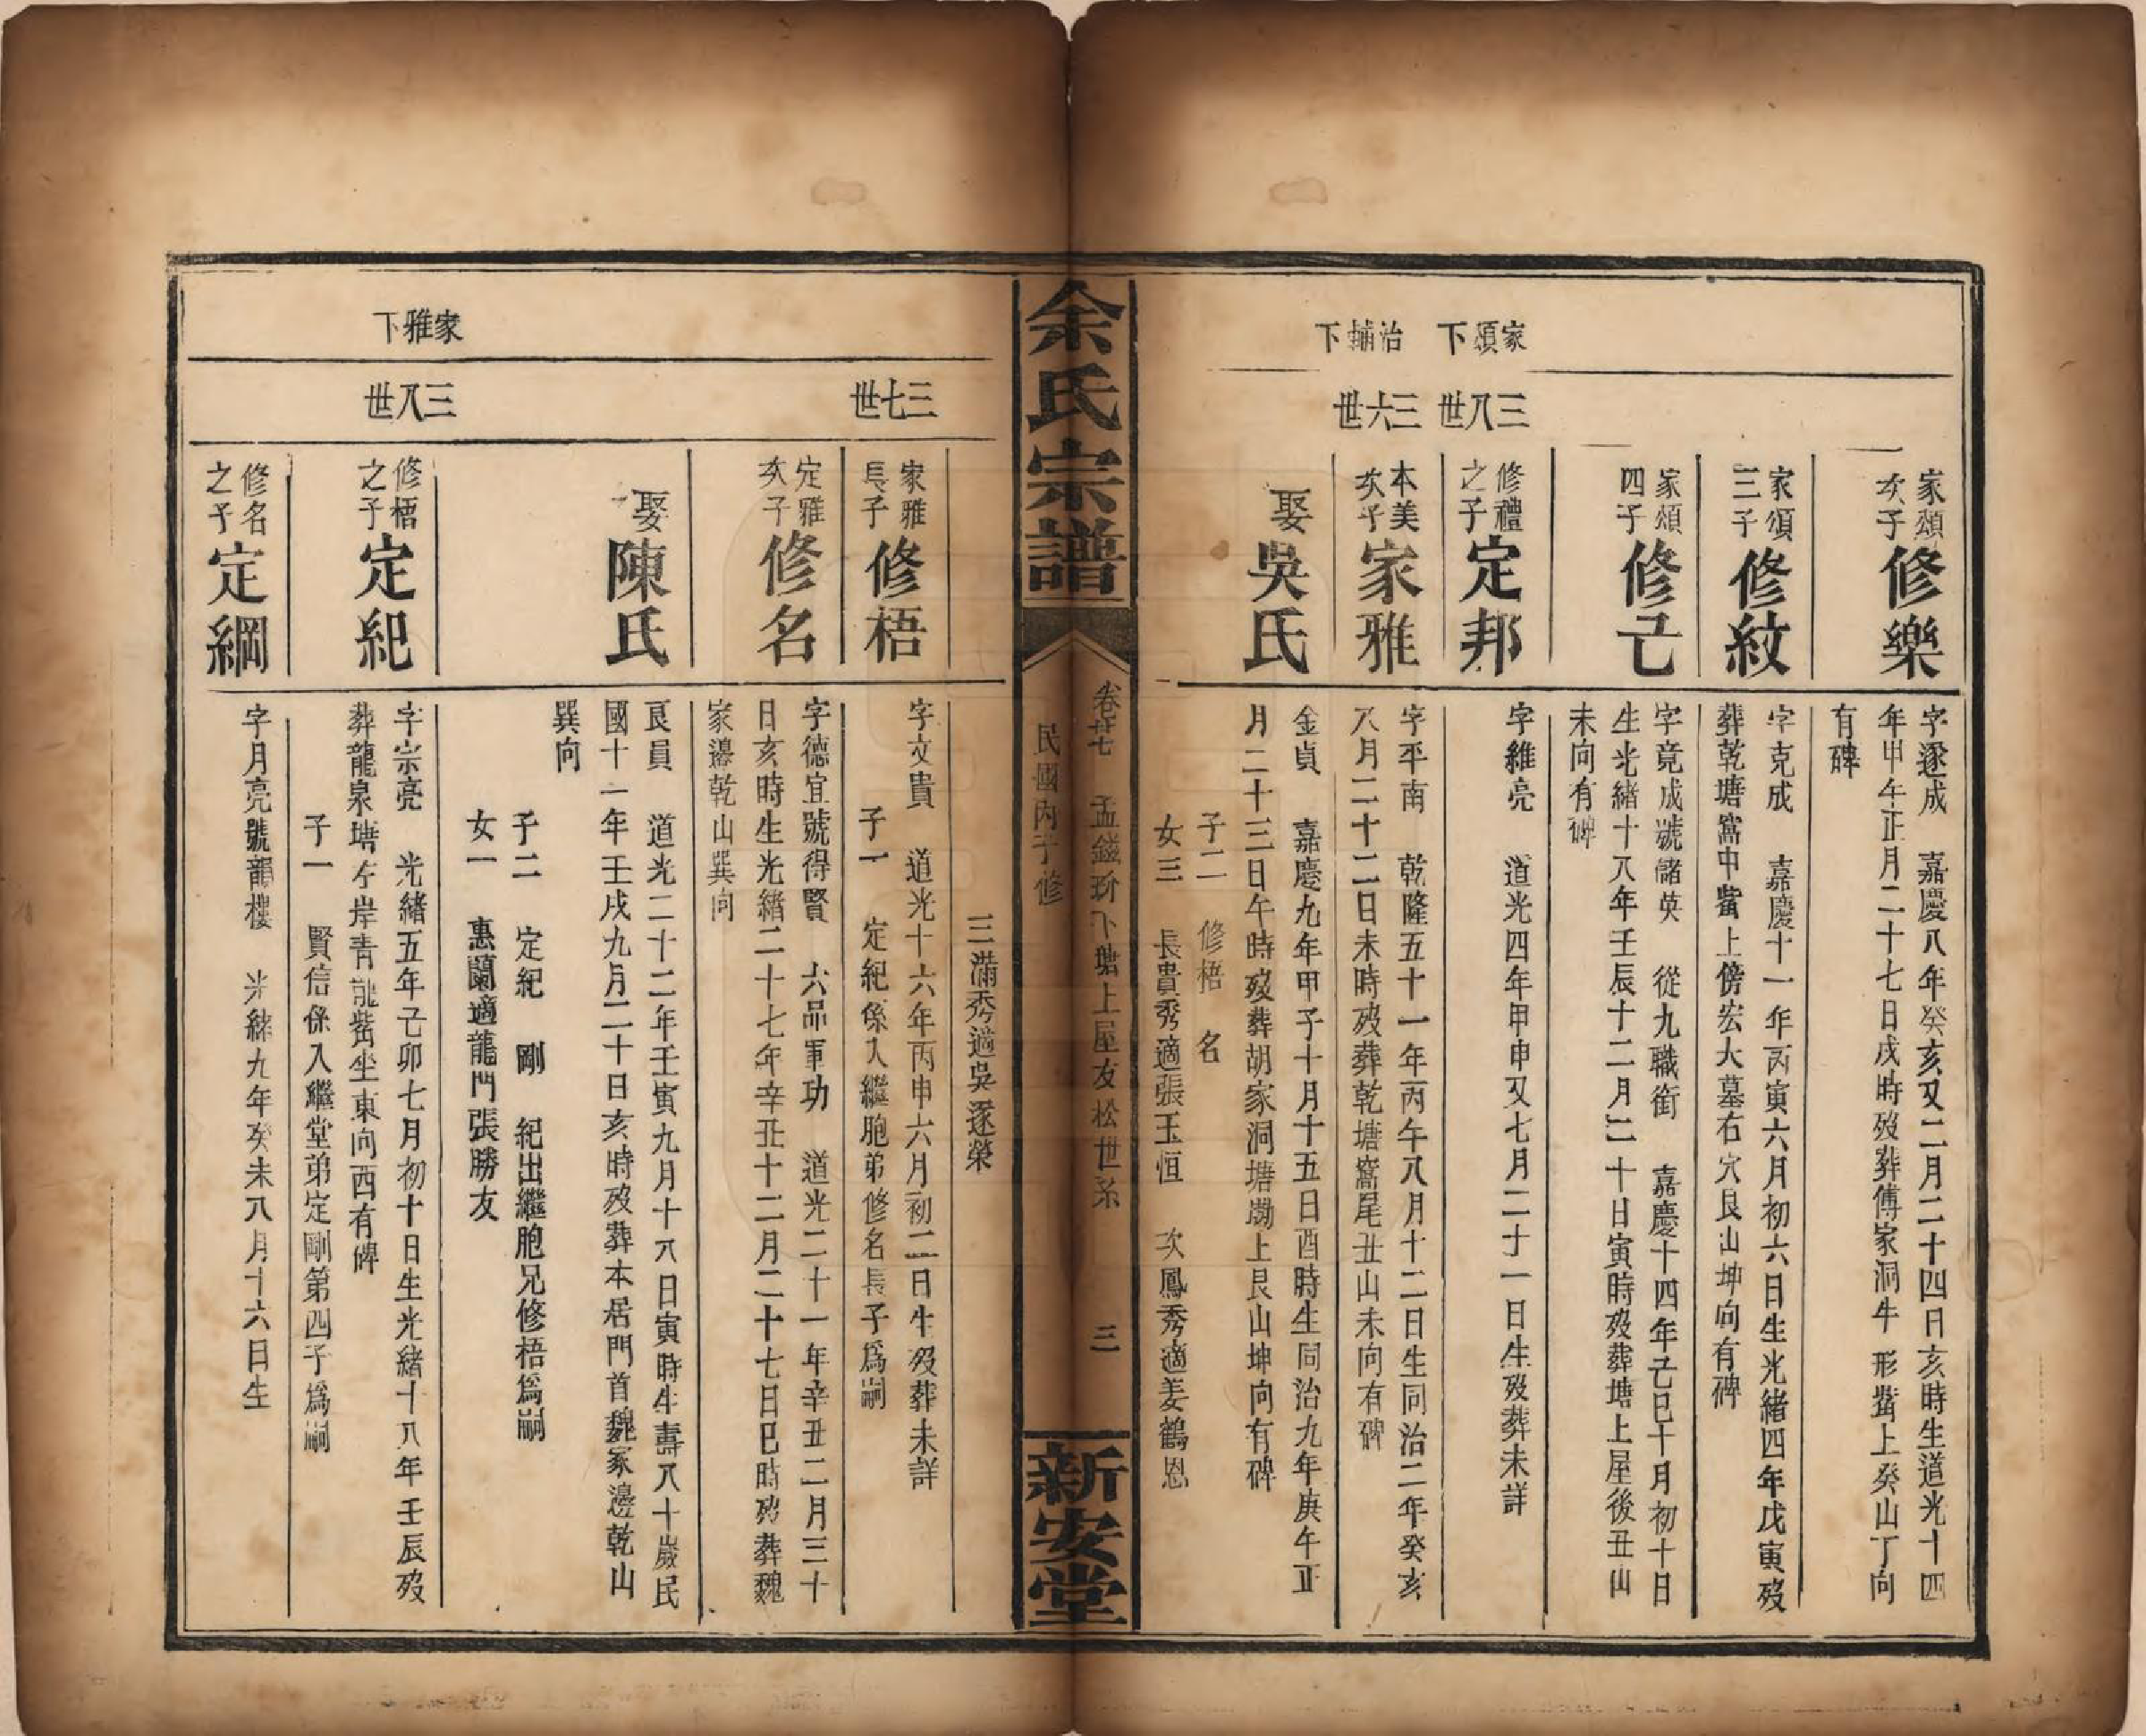 家頌下
治輔下
三八世
三六世
家頌
次子
修樂
字逐成　嘉慶八年癸亥又二月二十四日亥時生道光十四
年甲午正月二十七日戌時歿葬傅家洞牛形觜上癸山丁向
有碑
家頌
三子
修紋
字克成　嘉慶十一年丙寅六月初六日生光緒四年戊寅歿
葬乾塘窩中觜上傍宏大墓右穴艮山坤向有碑
家頌
四子
修己
字竟成號諸英　從九職銜　嘉慶十四年己巳十月初十日
生光緒十八年壬辰十二月二十日寅時歿葬塘上屋後丑山
未向有碑
修禮
之子
定邦
字維亮　道光四年甲申又七月二十一日生歿葬未詳
本美
次子
家雅
字平南　乾隆五十一年丙午八月十二日生同治二年癸亥
八月二十二日未時歿葬乾塘窩尾丑山未向有碑
娶
吳氏
金貞　嘉慶九年甲子十月十五日酉時生同治九年庚午正
月二十三日午時歿葬胡家洞塘坳上艮山坤向有碑
子二　修梧　名
女三　長貴秀適張玉恒　次鳳秀適姜鶴恩
余氏宗譜
卷廿七　孟錢玠下塘上屋友松世系　三
民國丙子修
新安堂
家雅下
三七世
三八世
三滿秀適吳逐榮
家雅
長子
修梧
字文貴　道光十六年丙申六月初二日生歿葬未詳
子一　定紀係入繼胞弟修名長子爲嗣
定雅
次子
修名
字德宜號得賢　六品軍功　道光二十一年辛丑二月三十
日亥時生光緒二十七年辛丑十二月二十七日巳時歿葬魏
家邊乾山巽向
娶
陳氏
艮員　道光二十二年壬寅九月十八日寅時生壽八十歲民
國十一年壬戌九月二十日亥時歿葬本居門首魏家邊乾山
巽向
子二　定紀　剛　紀出繼胞兄修梧爲嗣
女一　惠蘭適龍門張勝友
修梧
之子
定紀
字宗亮　光緒五年己卯七月初十日生光緒十八年壬辰歿
葬龍泉塘左岸青龍觜坐東向西有碑
子一　賢信係入繼堂弟定剛第四子爲嗣
修名
之子
定綱
字月亮號韻樓　光緒九年癸未八月十六日生